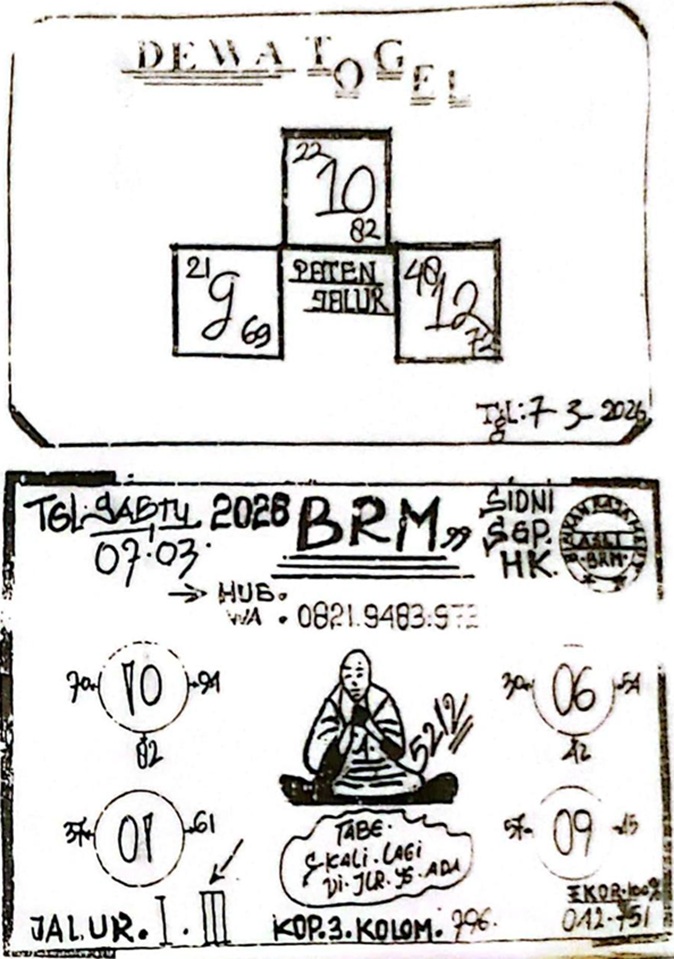 DEWA TOGEL
22
10
82
21
9
69
PATEN
JALUR
48
12
72
Tgl: 7-3-2026
TGL: SABTU 2026
07.03.
BRM
SIDNI
SGP.
HK.
ASLI
BRM
→ HUB.
WA. 0821.9483.973
70 10 94
82
30 06 54
42
5212
37 01 61
57 09 45
TABE.
KALI. LAGI
DI. JLR. YS. ADA
EKOR. 100%
JALUR. I. III
KOP. 3. KOLOM. 796.
042-751